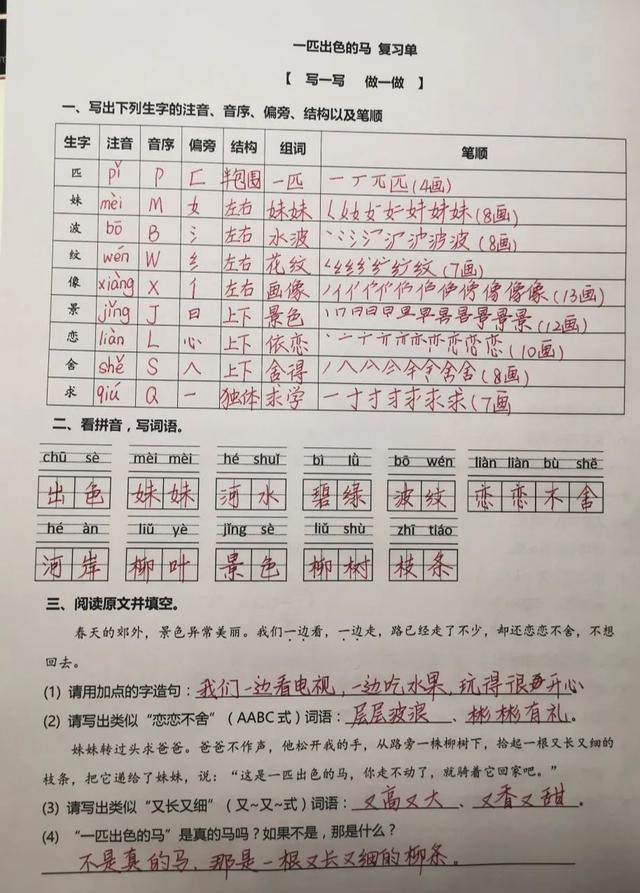 一匹出色的马 复习单
【 写一写 做一做 】
一、写出下列生字的注音、音序、偏旁、结构以及笔顺
生字 注音 音序 偏旁 结构 组词 笔顺
匹 pǐ P 匚 半包围 一匹 (4画)
妹 mèi M 女 左右 妹妹 (8画)
波 bō B 氵 左右 水波 (8画)
纹 wén W 纟 左右 花纹 (7画)
像 xiàng X 亻 左右 画像 (13画)
景 jǐng J 日 上下 景色 (12画)
恋 liàn L 心 上下 依恋 (10画)
舍 shě S 人 上下 舍得 (8画)
求 qiú Q 一 独体 求学 (7画
二、看拼音，写词语。
chū sè mèi mèi hé shuǐ bì lǜ bō wén liàn liàn bù shě
出色 妹妹 河水 碧绿 波纹 恋恋不舍
hé àn liǔ yè jǐng sè liǔ shù zhī tiáo
河岸 柳叶 景色 柳树 枝条
三、阅读原文并填空。
春天的郊外，景色异常美丽。我们一边看，一边走，路已经走了不少，却还恋恋不舍，不想
回去。
(1) 请用加点的字造句：我们一边看电视，一边吃水果，玩得很开心
(2) 请写出类似“恋恋不舍”（AABC 式）词语：层层波浪、彬彬有礼。
妹妹转过头求爸爸。爸爸不作声，他松开我的手，从路旁一株柳树下，拾起一根又长又细的
枝条，把它递给了妹妹，说：“这是一匹出色的马，你走不动了，就骑着它回家吧。”
(3) 请写出类似“又长又细”（又~又~式）词语：又高又大、又香又甜。
(4) “一匹出色的马”是真的马吗？如果不是，那是什么？
不是真的马，那是一根又长又细的柳条。